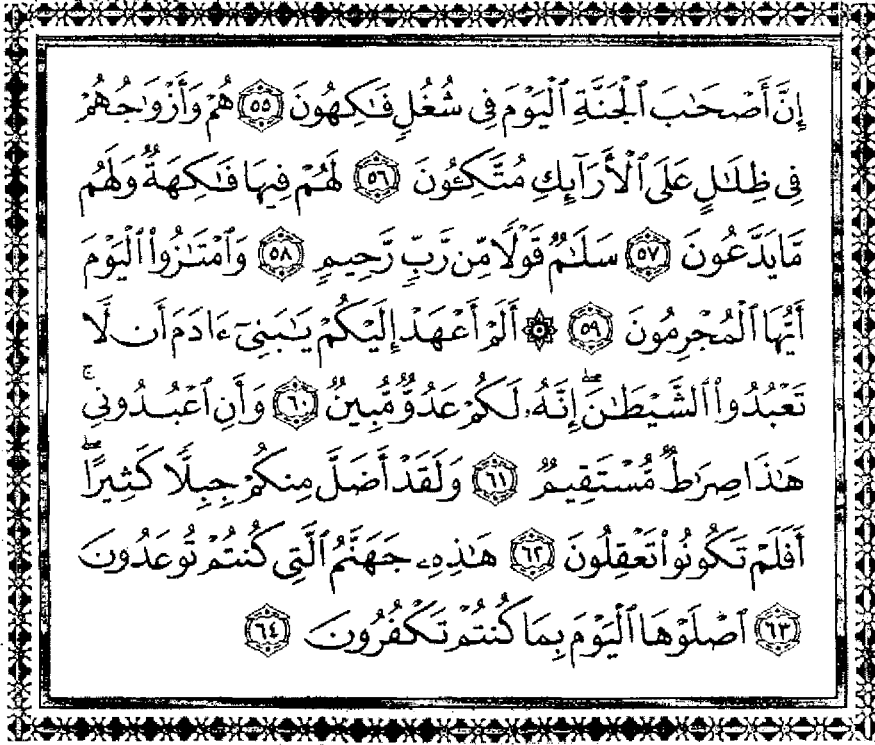 إِنَّ أَصْحَٰبَ ٱلْجَنَّةِ ٱلْيَوْمَ فِى شُغُلٍ فَٰكِهُونَ ٥٥ هُمْ وَأَزْوَٰجُهُمْ
فِى ظِلَٰلٍ عَلَى ٱلْأَرَآئِكِ مُتَّكِـُٔونَ ٥٦ لَهُمْ فِيهَا فَٰكِهَةٌ وَلَهُم
مَّا يَدَّعُونَ ٥٧ سَلَٰمٌ قَوْلًا مِّن رَّبٍّ رَّحِيمٍ ٥٨ وَٱمْتَٰزُوا۟ ٱلْيَوْمَ
أَيُّهَا ٱلْمُجْرِمُونَ ٥٩ ۞ أَلَمْ أَعْهَدْ إِلَيْكُمْ يَٰبَنِىٓ ءَادَمَ أَن لَّا
تَعْبُدُوا۟ ٱلشَّيْطَٰنَ ۖ إِنَّهُۥ لَكُمْ عَدُوٌّ مُّبِينٌ ٦٠ وَأَنِ ٱعْبُدُونِى ۚ
هَٰذَا صِرَٰطٌ مُّسْتَقِيمٌ ٦١ وَلَقَدْ أَضَلَّ مِنكُمْ جِبِلًّا كَثِيرًا ۖ
أَفَلَمْ تَكُونُوا۟ تَعْقِلُونَ ٦٢ هَٰذِهِۦ جَهَنَّمُ ٱلَّتِى كُنتُمْ تُوعَدُونَ
٦٣ ٱصْلَوْهَا ٱلْيَوْمَ بِمَا كُنتُمْ تَكْفُرُونَ ٦٤